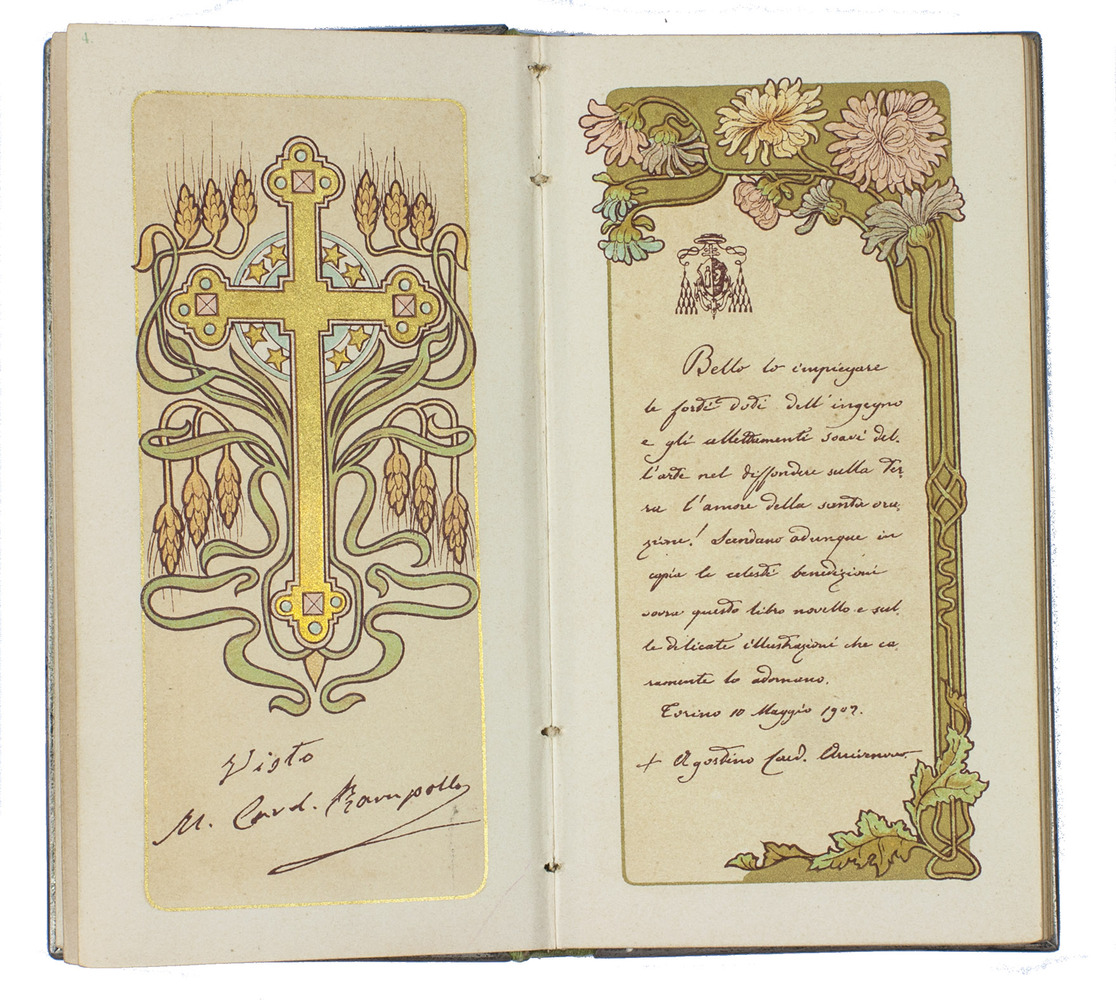 4.
Visto
M. Card. Rampolla
Bello lo impiegare
le forti doti dell'ingegno
e gli allettamenti soavi del-
l'arte nel diffondere sulla ter-
ra l'amore della santa ora-
zione! Scendano adunque in
copia le celesti benedizioni
sovra questo libro novello e sul-
le delicate illustrazioni che ca-
ramente lo adornano.
Torino 10 Maggio 1907.
+ Agostino Card.